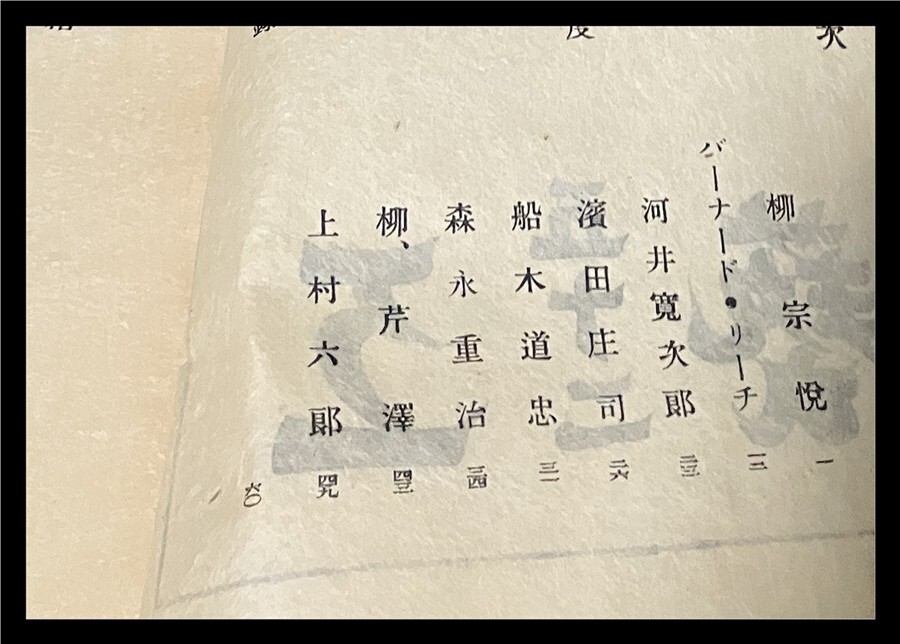 次
柳宗悅 一
バーナード・リーチ 一二
河井寬次郎 二三
度
濱田庄司 二六
船木道忠 三一
森永重治 三四
柳、芹澤 四三
上村六郞 四九
錄
六〇